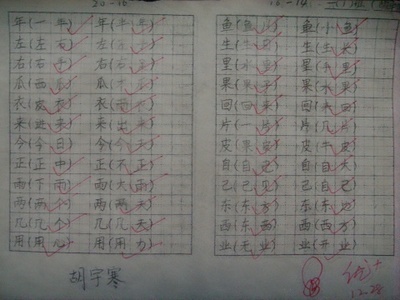 20-18
年(一半) 年(半年)
左(左右) 左(左手)
右(右手) 右(右)
瓜(西瓜) 瓜
衣(皮衣) 衣(雨衣)
来(进来) 来(出来)
今(今日) 今(今天)
正(正中) 正(不正)
雨(下雨) 雨(大雨)
两(两个) 两(两天)
几(几个) 几(几天)
用(用心) 用(用力)
胡宇寒
鱼(鱼) 鱼(小鱼)
生(生日) 生(生米)
里(水里) 里(手里)
果(果子) 果(水果)
回(回来) 回(回)
片(一片) 片(几片)
皮(果皮) 皮(牛皮)
自(自己) 自(自大)
己(己见) 己(自己)
东(东方) 东(东)
西(东西) 西(西方)
业(无业) 业(开业)
优+
12.24